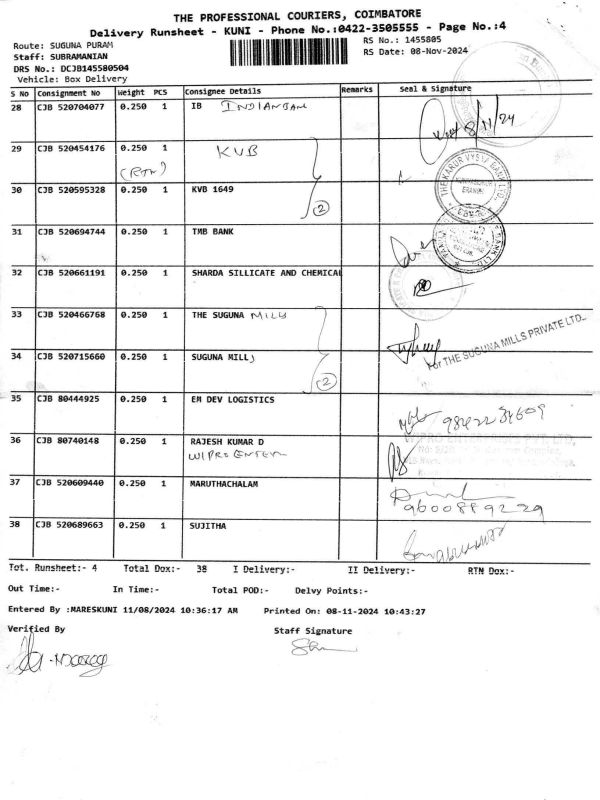 THE PROFESSIONAL COURIERS, COIMBATORE
Delivery Runsheet - KUNI - Phone No.:0422-3505555 - Page No.:4
Route: SUGUNA PURAM
RS No.: 1455805
Staff: SUBRAMANIAN
RS Date: 08-Nov-2024
DRS No.: DCJB145580504
Vehicle: Box Delivery
S No Consignment No Weight PCS Consignee Details Remarks Seal & Signature
28 CJB 520704077 0.250 1 IB INDIANBAN 8/11/24
29 CJB 520454176 0.250 1 KVB
(RTN)
THE KARUR VYSYA BANK LTD.
30 CJB 520595328 0.250 1 KVB 1649
2
31 CJB 520694744 0.250 1 TMB BANK
32 CJB 520661191 0.250 1 SHARDA SILLICATE AND CHEMICAL
33 CJB 520466768 0.250 1 THE SUGUNA MILLS
For THE SUGUNA MILLS PRIVATE LTD.,
34 CJB 520715660 0.250 1 SUGUNA MILLS
2
35 CJB 80444925 0.250 1 EM DEV LOGISTICS
36 CJB 80740148 0.250 1 RAJESH KUMAR D
WIPRO ENTER
37 CJB 520609440 0.250 1 MARUTHACHALAM
9600889229
38 CJB 520689663 0.250 1 SUJITHA
Tot. Runsheet:- 4 Total Dox:- 38 I Delivery:- II Delivery:- RTN Dox:-
Out Time:- In Time:- Total POD:- Delvy Points:-
Entered By :MARESKUNI 11/08/2024 10:36:17 AM Printed On: 08-11-2024 10:43:27
Verified By Staff Signature